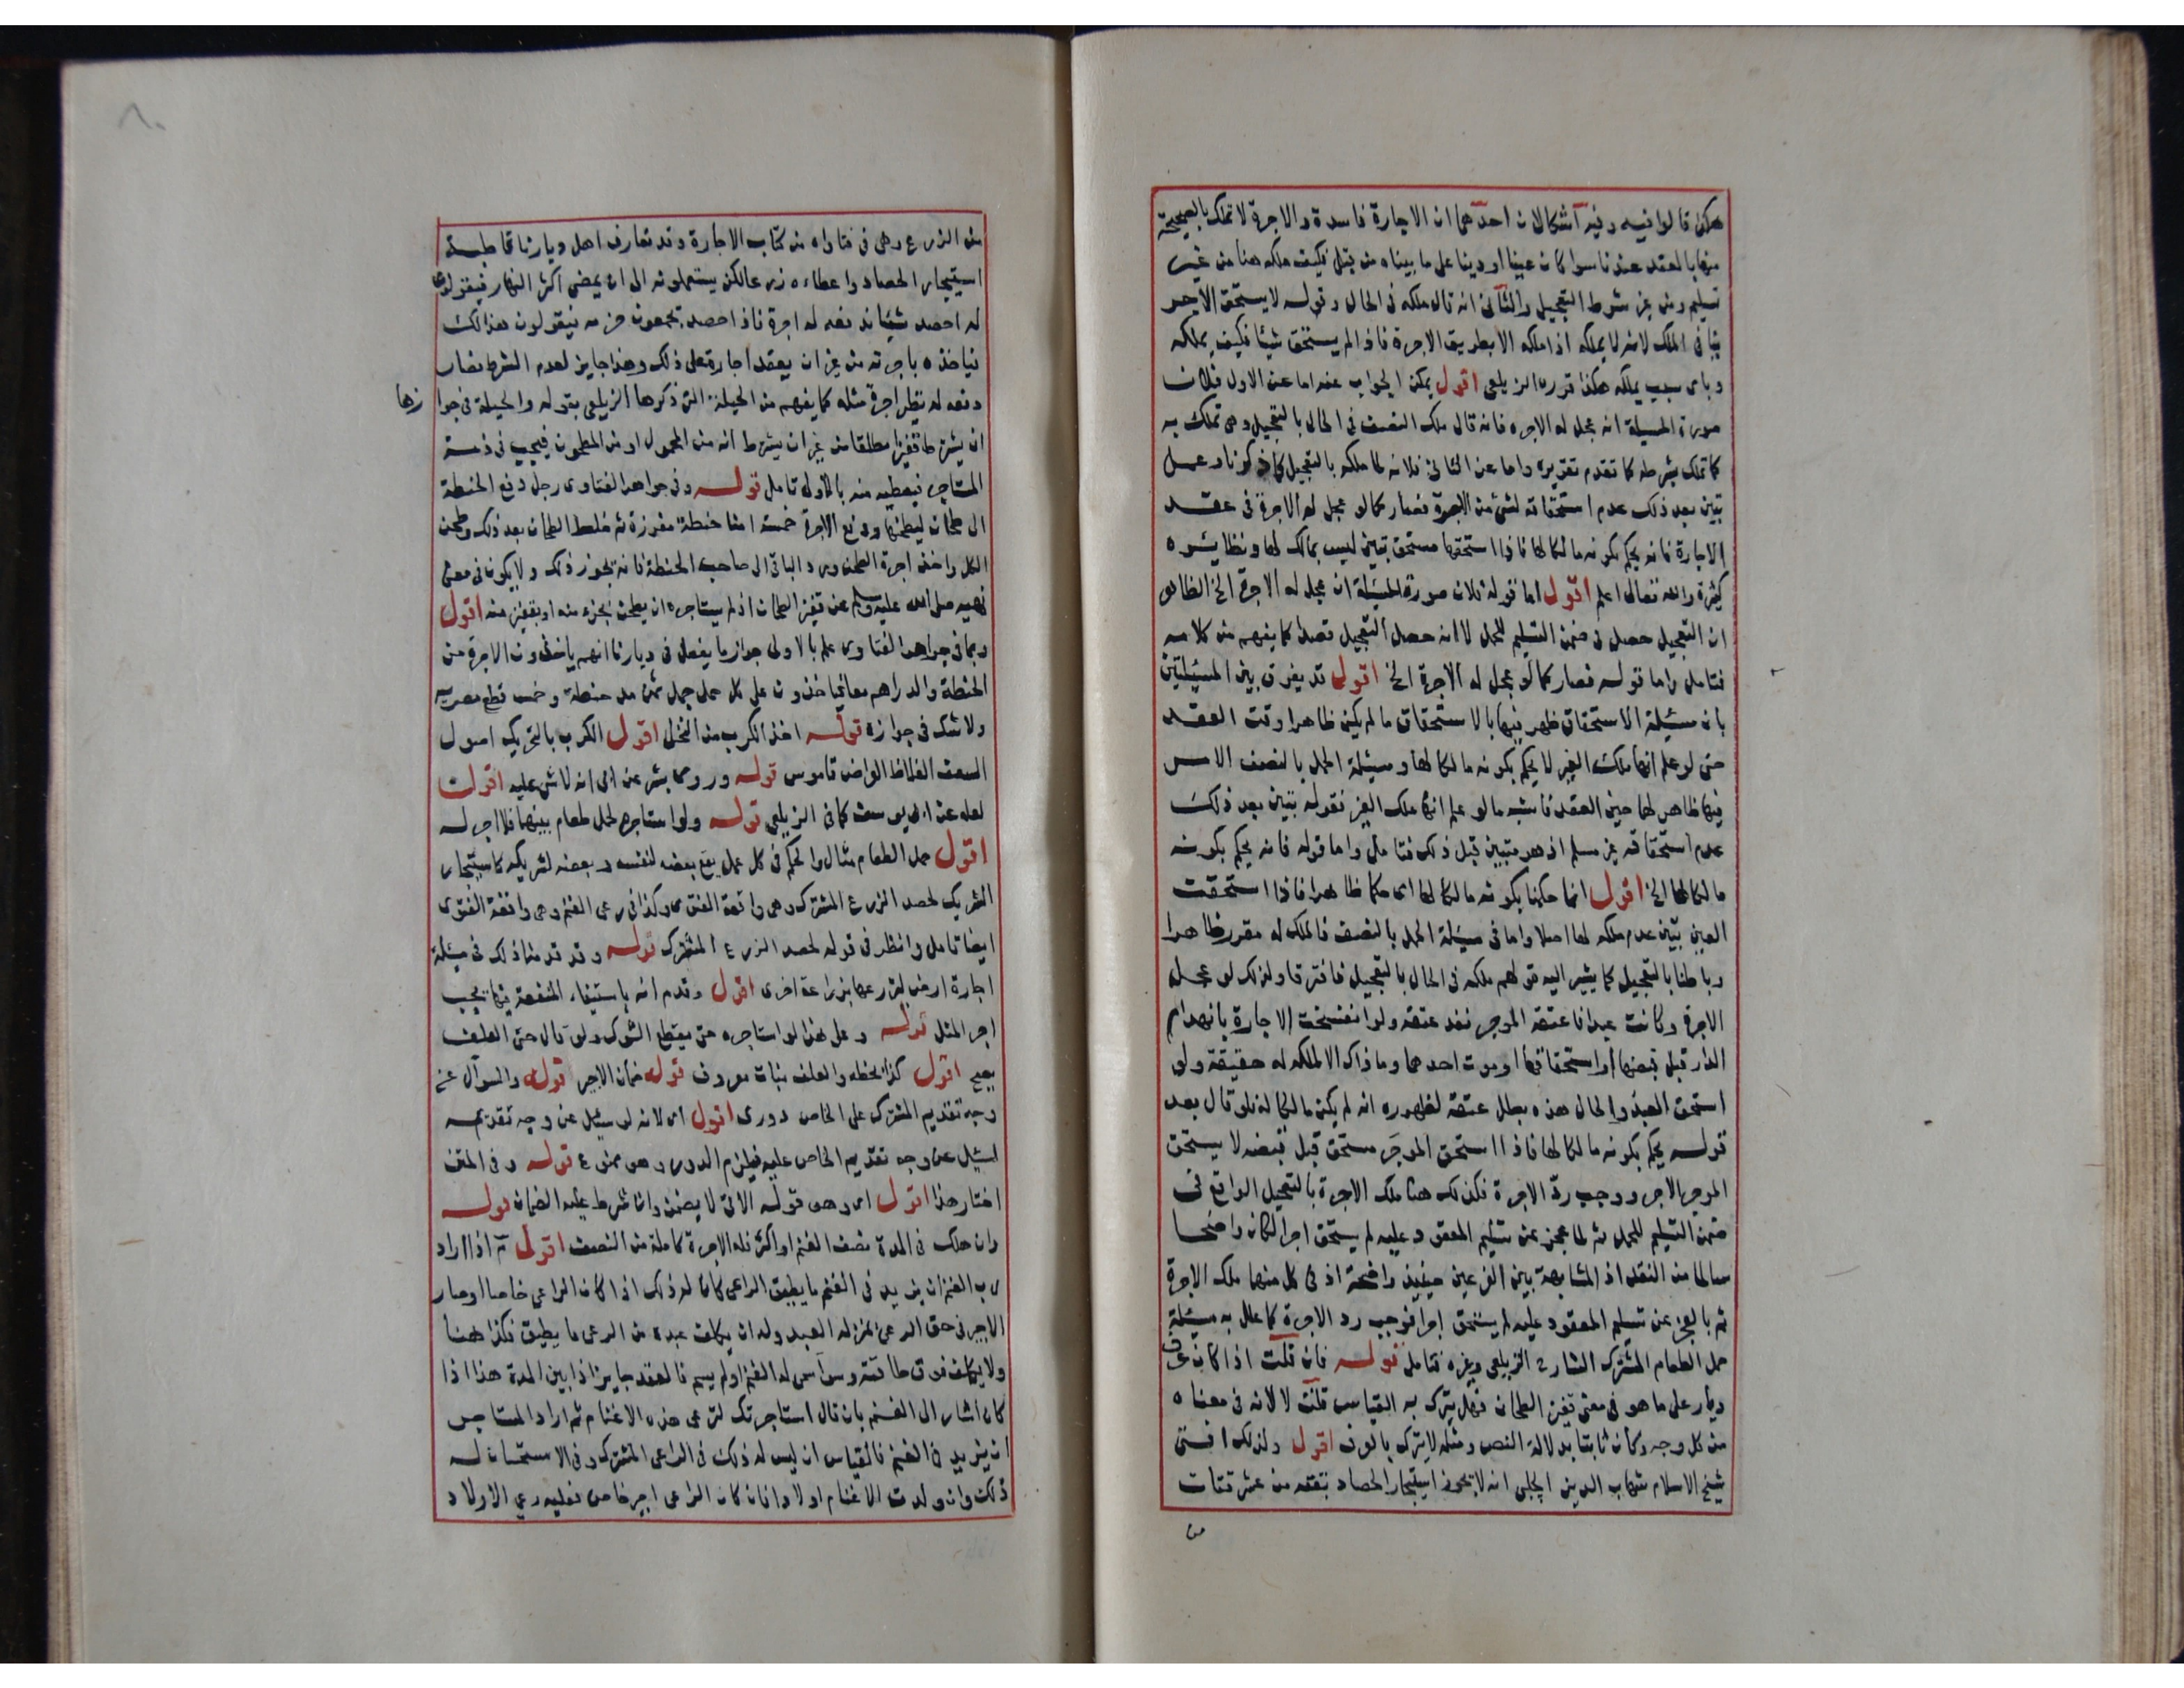 هكذا قالوا فيه وفيه اشكالان احدهما ان الاجارة فاسدة والاجرة لا تملك بالصحيحة
منها بالعقد عندنا سوا كان عينا او دينا على ما بيناه من قبل فكيف ملكه هنا من غير
تسليم ومن غير شرط التعجيل والثاني انه قال ملكه في الحال وقوله لا يستحق الاجر
ينافي الملك لانه لا يملكه اذا ملكه الا بطريق الاجرة فاذا لم يستحق شيئا فكيف يملكه
وباى سبب يملكه هكذا قرره الزيلعي اقول يمكن الجواب عنه اما عن الاول فلان
صورة المسيلة انه عجل له الاجره فانه قال ملك النصف في الحال بالتعجيل وهي تملك به
كما تملك بشرطه كما تقدم تقريره واما عن الثاني فلانه لما ملكه بالتعجيل
تبين بعد ذلك عدم استحقاقه لشئ من الاجرة فصار كما لو عجل له الاجرة في عقد
الاجارة فانه يحكم بكونه مالكا لها فاذا استحقها مستحق تبين ليس بمالك لها ونظايره
كثيرة والله تعالى اعلم اقول اما قوله فلان صورة المسيلة ان عجل له الاجرة الخ الظاهر
ان التعجيل حصل في ضمن التسليم للحمل لا انه حصل التعجيل قصدا كما يفهم من كلامه
فتامل واما قوله فصار كما لو عجل له الاجرة الخ اقول قد يفرق بين المسيلتين
بان مسيلة الاستحقاق ظهر فيها بالاستحقاق ما لم يكن ظاهرا وقت العقد
حتى لو علم انها ملك الغير لا يحكم بكونه مالكا لها ومسيلة الحمل بالنصف الامر
فيها ظاهر لهما حين العقد فاشبه ما لو علم انها ملك الغير فقوله تبين بعد ذلك
عدم استحقاقه غير مسلم اذ هو متبين قبل ذلك فتامل واما قوله فانه يحكم بكونه
مالكا لها الخ اقول انما حكمنا بكونه مالكا لها اى حكما ظاهرا فاذا استحقت
العين تبين عدم ملكه لها اصلا واما في مسيلة الحمل بالنصف فالملك له مقرر ظاهرا
وباطنا بالتعجيل كما يشير اليه قولهم ملكه في الحال بالتعجيل فافترقا ولذلك لو عجل
الاجرة وكانت عبدا فاعتقه الموجر نفذ عتقه ولو انفسخت الاجارة بانهدام
الدار قبل قبضها او استحقاقها او موت احدهما وما ذاك الا لملكه له حقيقة ولو
استحق العبد والحال هذه بطل عتقه لظهوره انه لم يكن مالكا له فلو قال بعد
قوله يحكم بكونه مالكا لها فاذا استحق الموجر مستحق قبل قبضه لا يستحق
الموجر الاجر ووجب رد الاجرة فكذلك هنا ملك الاجرة بالتعجيل الواقع في
ضمن التسليم للحمل ثم لما عجز عن تسليم المعقود عليه لم يستحق اجرا لكان واضحا
سالما من النقد اذ المشابهة بين الفرعين حينيذ واضحة اذ في كل منهما ملك الاجرة
ثم بالعجز عن تسليم المعقود عليه لم يستحق اجرا فوجب رد الاجرة كما علل به مسيلة
حمل الطعام المشترك الشارح الزيلعي وغيره فتامل قوله فان قلت اذا كان عرف
ديار على ما هو في معنى قفيز الطحان فهل يترك به القياس قلت لا لانه في معناه
من كل وجه وكان ثابتا بدلالة النص ومثله لا يترك بالعرف اقول ولذلك افتى
شيخ الاسلام شهاب الدين الحلبى انه لا يجوز استيجار الحصاد بقتة من عشر قتات
من
من الزرع وهي في فتاواه من كتاب الاجارة وقد تعارف اهل ديارنا قاطبة
استيجار الحصاد واعطاءه زرعا لكن يستعملونه الى ان يمضى اكثر النهار فيقولون
له احصد شيئا ندفعه له اجرة فاذا احصد يجمعون حزمه فيقولون هذا لك
فياخذه باجرته من غير ان يعقد اجارة على ذلك وهذا جايز لعدم الشرط فصار
دفعه له نظير اجرة مثله كما يفهم من الحيلة التي ذكرها الزيلعي بقوله والحيلة في جوا زها
ان يشترط قفيزا مطلقا من غير ان يشترط انه من المحمول او من المطحون فيجب في ذمة
المستاجر فيعطيه منه بالاولى تامل قوله وفي جواهر الفتاوى رجل دفع الحنطة
الى طحان ليطحنها ودفع الاجرة خمسة امنا حنطة مفرزة ثم خلط الطحان بعد ذلك وطحن
الكل واخذ اجرة الطحن ورد الباقى الى صاحب الحنطة فانه يجوز ذلك ولا يكون في معنى
نهيه صلى الله عليه وسلم عن قفيز الطحان اذ لم يستاجره ان يطحن بجزء منه او بقفيز منه اقول
وبما في جواهر الفتاوى علم بالاولى جواز ما يفعل في ديارنا انهم ياخذون الاجرة من
الحنطة والدراهم معا فياخذون على كل حمل جمل ثمن مد حنطة وخمس قطع مصريه
ولا شك في جوازه قوله اخذ الكرب من النخل اقول الكرب بالتحريك اصول
السعف الغلاظ العراض قاموس قوله وروى بشر عن ابى انه لا شئ عليه اقول
لعله عن ابى يوسف كما في الزيلعي قوله ولو استاجره لحمل طعام بينهما فلا اجر له
اقول حمل الطعام مثال والحكم في كل عمل يقع بعضه لنفسه وبعضه لشريكه كاستيجار
الشريك لحصد الزرع المشترك وهي واقعة الفتوى وكذا في رعى الغنم وهي واقعة الفتوى
ايضا تامل وانظر في قوله لحصد الزرع المشترك قوله وقد قدمنا ذلك في مسيلة
اجارة ارض ليزرعها بزراعة اخرى اقول وقدم انه باستيفاء المنفعة فيها يجب
اجر المثل قوله وعلى هذا لو استاجره حتى يقطع الشوك ولو قال حتى العلف
يصح اقول كذا بخطه والعلف نبات معروف قوله ضمان الاجير قوله والسوال عن
وجه تقديم المشترك على الخاص دورى اقول اى لانه لو سيل عن وجه تقديمه
لسيل عن وجه تقديم الخاص عليه فيلزم الدور وهو ممنوع قوله وفي المتن
اختار هذا اقول اى وهو قوله الاتى لا يضمن وان شرط عليه الضمان قوله
وان هلك في المدة نصف الغنم او اكثر فله الاجرة كاملة من النصف اقول ثم اذا اراد
رب الغنم ان يزيد في الغنم ما يطيق الراعى كان له ذلك اذا كان الراعي خاصا او صار
الاجير في حق الرعى بمنزلة العبد وله ان يكلف عبده من الرعى ما يطيق فكذا هنا
ولا يكلفه فوق طاقته وسوا سمى له الغنم او لم يسم فالعقد جايز اذا بين المدة هذا اذا
كان اشار الى الغنم بان قال استاجرتك لترعى هذه الاغنام ثم اراد المستاجر
ان يزيد في الغنم فالقياس ان ليس له ذلك في الراعى المشترك وفي الاستحسان له
ذلك وان ولدت الاغنام اولادا فان كان الراعى اجير خاص فعليه رعي الاولاد